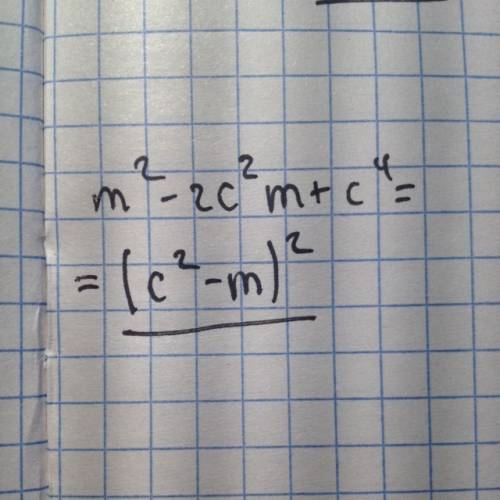 m² - 2c² m + c⁴ =
= (c² - m)²